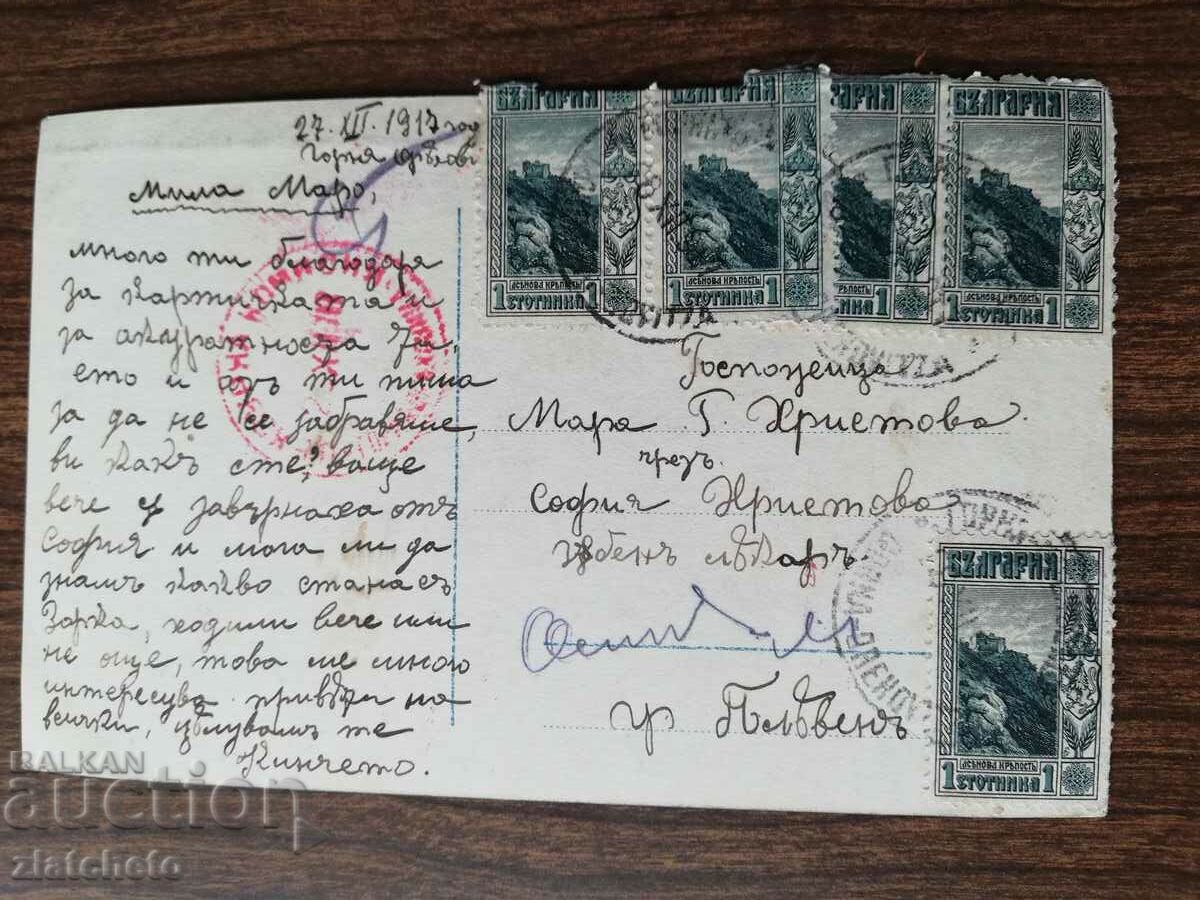 27. XII. 1917 год
Горня
Мила Маро,
много ти благодаря
за картичката и
за акуратноста ти,
ето и азъ ти пиша
за да не се забравяме,
ви какъ сте, ваще
вече завърнаха отъ
София и мога ли да
знамъ какво стана съ
Зорка, ходили вече или
не още, това ме много
интересува привѣти на
всички, цѣлувамъ те
Кинчето.
БЪЛГАРИЯ
АСѢНОВА КРѢПОСТЬ
1 СТОТИНКА 1
БЪЛГАРИЯ
АСѢНОВА КРѢПОСТЬ
1 СТОТИНКА 1
БЪЛГАРИЯ
БЪЛГАРИЯ
АСѢНОВА КРѢПОСТЬ
1 СТОТИНКА 1
Госпожица
Мара Г. Христова
чрезъ
София Христова
зѫбенъ лѣкаръ
гр Плѣвенъ
БЪЛГАРИЯ
АСѢНОВА КРѢПОСТЬ
1 СТОТИНКА 1
BALKAN
auction
zlatcheto